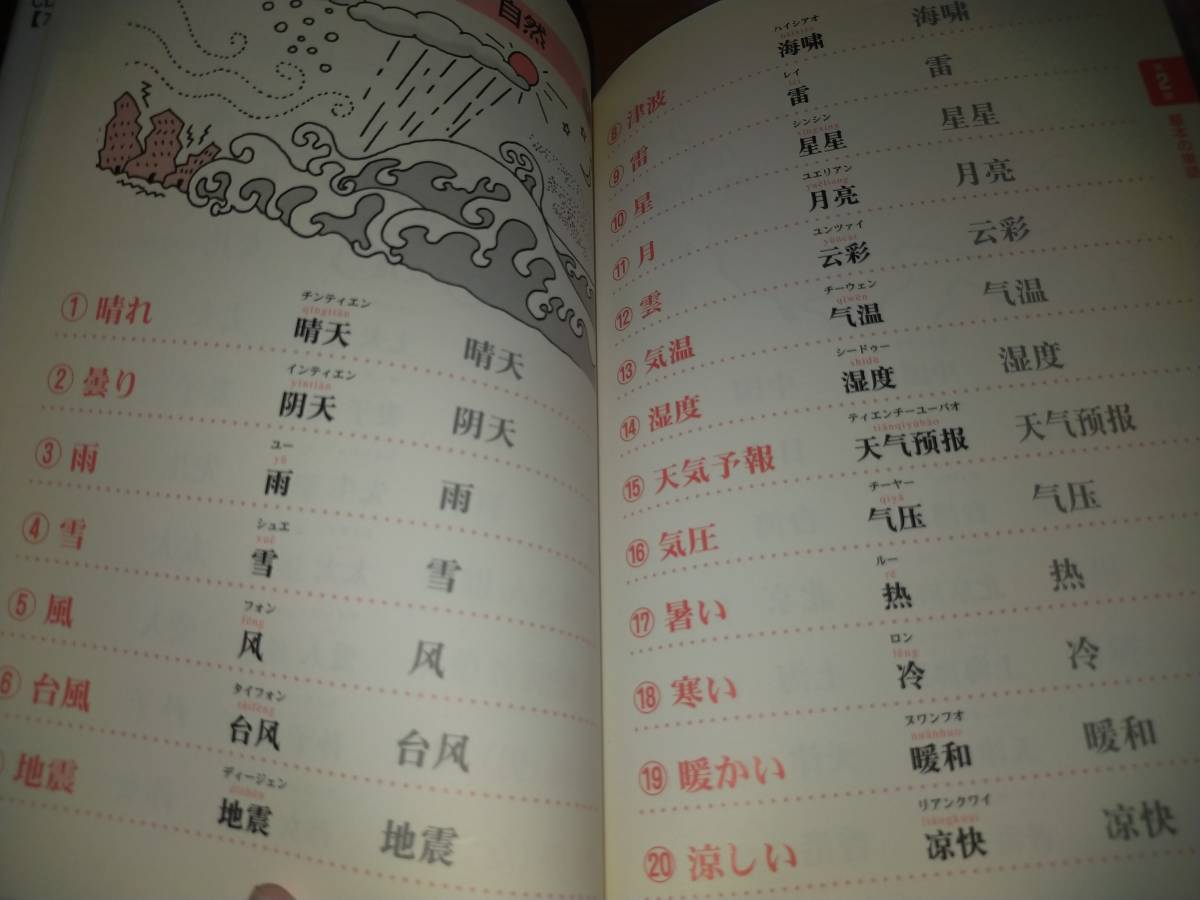 自然
① 晴れ チンティエン qíngtiān 晴天 晴天
② 曇り インティエン yīntiān 阴天 阴天
③ 雨 ユー yǔ 雨 雨
④ 雪 シュエ xuě 雪 雪
⑤ 風 フォン fēng 风 风
⑥ 台風 タイフォン táifēng 台风 台风
地震 ディージェン dìzhèn 地震 地震
第2章
基本の単語
⑧ 津波 ハイシアオ 海啸 海啸
⑨ 雷 レイ 雷 雷
⑩ 星 シンシン xīngxing 星星 星星
⑪ 月 ユエリアン yuèliang 月亮 月亮
⑫ 雲 ユンツァイ yúncai 云彩 云彩
⑬ 気温 チーウェン qìwēn 气温 气温
⑭ 湿度 シードゥー shīdù 湿度 湿度
⑮ 天気予報 ティエンチーユーバオ tiānqìyùbào 天气预报 天气预报
⑯ 気圧 チーヤー qìyā 气压 气压
⑰ 暑い ルー rè 热 热
⑱ 寒い ロン lěng 冷 冷
⑲ 暖かい ヌワンフオ nuǎnhuo 暖和 暖和
⑳ 涼しい リアンクワイ liángkuai 凉快 凉快